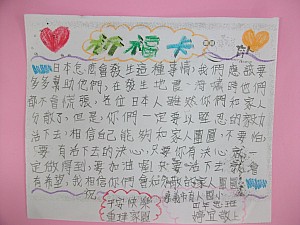 祈福卡
日本怎麼會發生這種事情,我們應該要
多多幫助他們,在發生地震、海嘯時他們
都不會慌張,各位日本人雖然你們和家人
分散了,但是,你們一定要以堅忍的
活下去,相信自己能夠和家人團圓,不要怕
要有活下去的決心,只要你有決心就一
定做得到,要加油喔!只要活下去就會
有希望,我相信你們會和分散的家人團圓
祝
平安快樂
重建家園
嘉義市育人國小
婷宜敬上